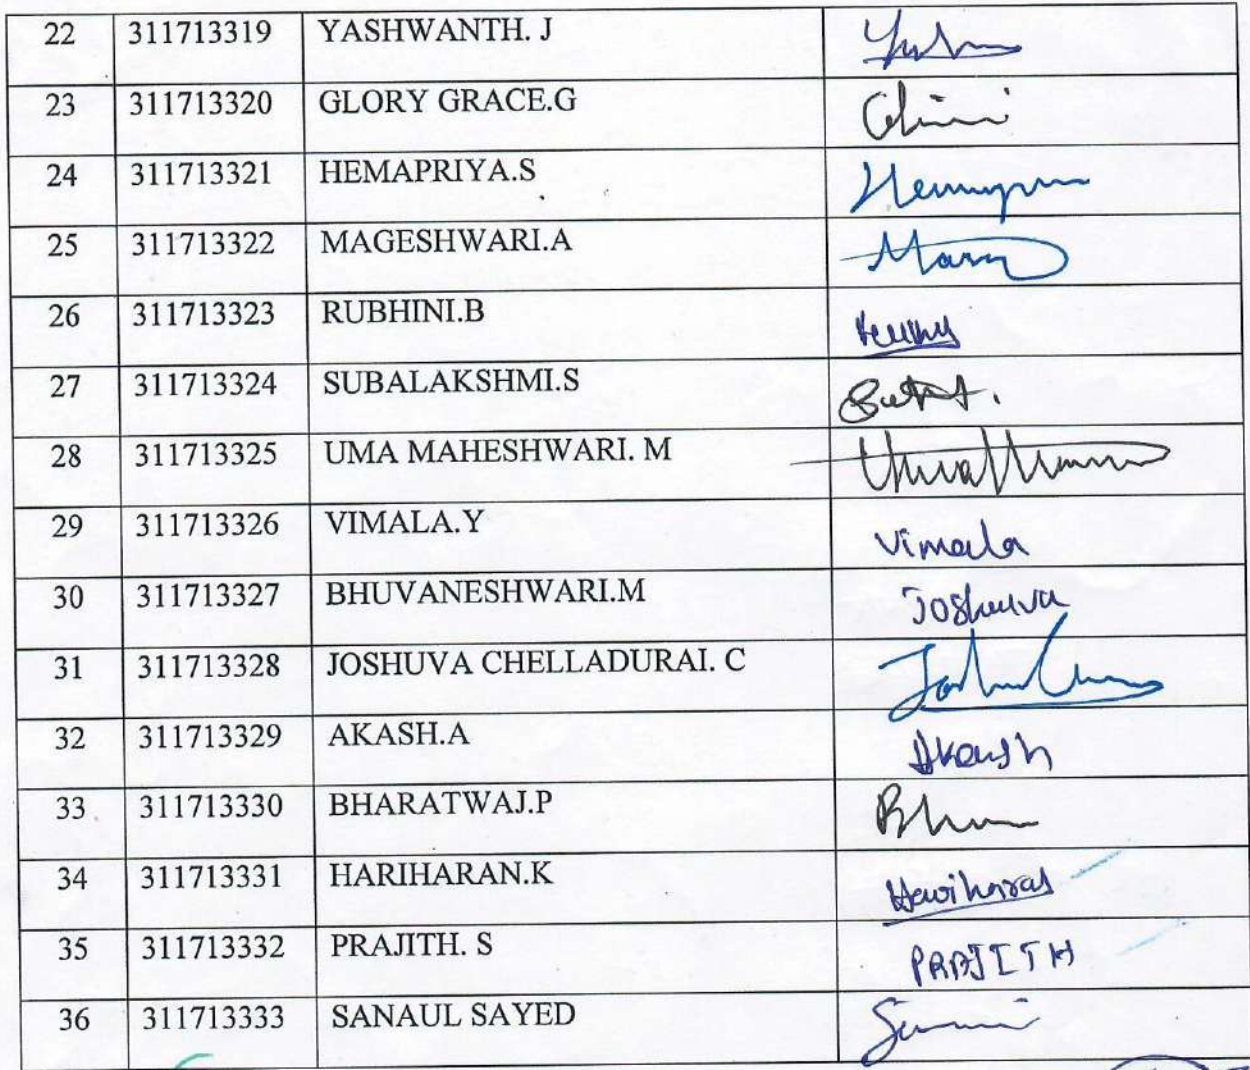 22 311713319 YASHWANTH. J
23 311713320 GLORY GRACE.G
24 311713321 HEMAPRIYA.S
25 311713322 MAGESHWARI.A
26 311713323 RUBHINI.B
27 311713324 SUBALAKSHMI.S
28 311713325 UMA MAHESHWARI. M
29 311713326 VIMALA.Y Vimala
30 311713327 BHUVANESHWARI.M Joshuva
31 311713328 JOSHUVA CHELLADURAI. C
32 311713329 AKASH.A Akash
33 311713330 BHARATWAJ.P
34 311713331 HARIHARAN.K
35 311713332 PRAJITH. S PRAJITH
36 311713333 SANAUL SAYED